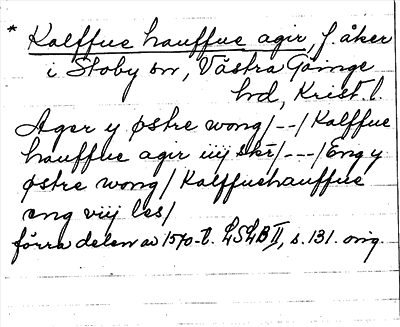 * Kalffue hauffue agir, f. åker
i Stoby sn, Västra Göinge
hd, Krist. l.
Ager y østre wong /--/ Kalffue
hauffue agir iiij skr /---/ Eng y
østre wong / Kalffuehauffue
eng viij les /
förra delen av 1570-t. LSLB II, s. 131. orig.